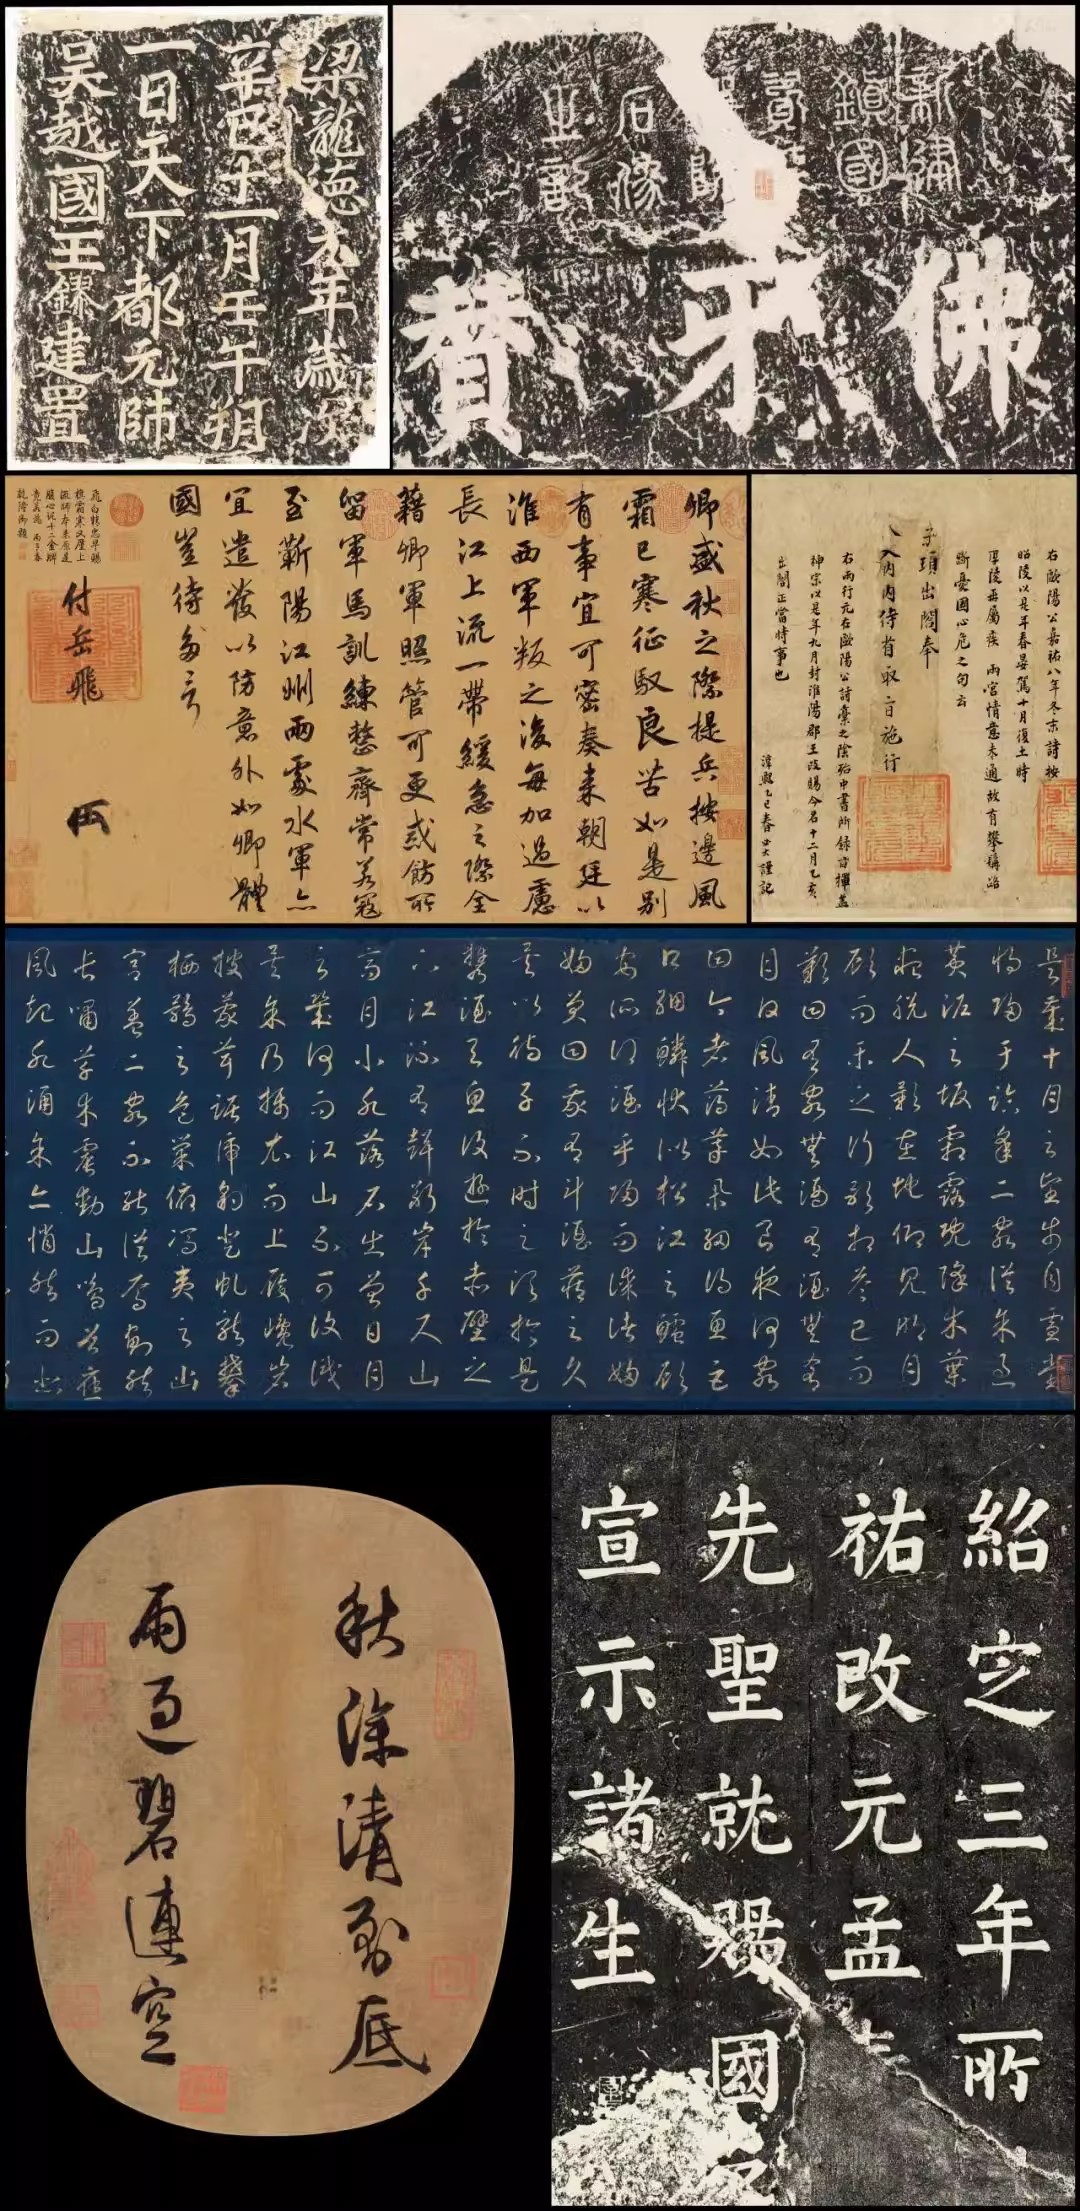 梁龍德元年歲次
辛巳十一月壬午朔
一日天下都元帥
吳越國王鏐建置
鎮國
佛牙贊
卿盛秋之際提兵按邊風
霜已寒征馭良苦如是別
有事宜可密奏來朝廷以
淮西軍叛之後每加過慮
長江上流一帶緩急之際全
藉卿軍照管可更戒飭所
留軍馬訓練整齊常若寇
至蘄陽江州兩處水軍亦
宜遣發以防意外如卿體
國豈待多言
付岳飛
飛白精忠早賜
旗霜寒又屢上
淮師本來原是
腹心託十二金牌
竟為誰 丙子春
乾隆御題
右歐陽公嘉祐八年冬末詩按
昭陵以是年春晏駕十月復土時
厚陵再屬疾 兩宮情意未通故有攀號路
斷憂國心危之句云
子頊出閤奉
入內內侍省取旨施行
右兩行元在歐陽公詩稾之陰殆中書所錄旨揮蓋
神宗以是年九月封淮陽郡王改賜今名十二月乙亥
出閤正當時事也
淳熙乙巳春廿六謹記
是歲十月之望步自雪堂
將歸于臨皋二客從余過
黃泥之坂霜露既降木葉
盡脫人影在地仰見明月
顧而樂之行歌相答已而
歎曰有客無酒有酒無肴
月白風清如此良夜何客
曰今者薄暮舉網得魚巨
口細鱗狀似松江之鱸顧
安所得酒乎歸而謀諸婦
婦笑曰我有斗酒藏之久
矣以待子不時之須於是
攜酒與魚復遊於赤壁之
下江流有聲斷岸千尺山
高月小水落石出曾日月
之幾何而江山不可復識
矣余乃攝衣而上履巉岩
披蒙茸踞虎豹登虬龍攀
栖鶻之危巢俯馮夷之幽
宮蓋二客不能從焉劃然
長嘯草木震動山鳴谷應
風起水涌余亦悄然而悲
秋深清到底
雨過碧連空
紹定三年所
祐改元孟
先聖就賜國
宣示諸生